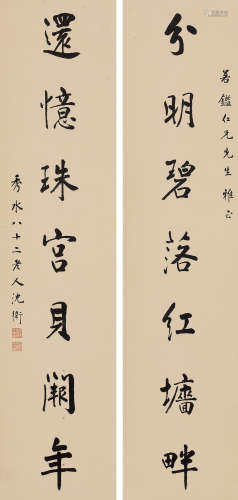 鑑仁兄先生 雅正
分明碧落紅墻畔
還憶珠宮貝闕年
秀水八十二老人沈衛